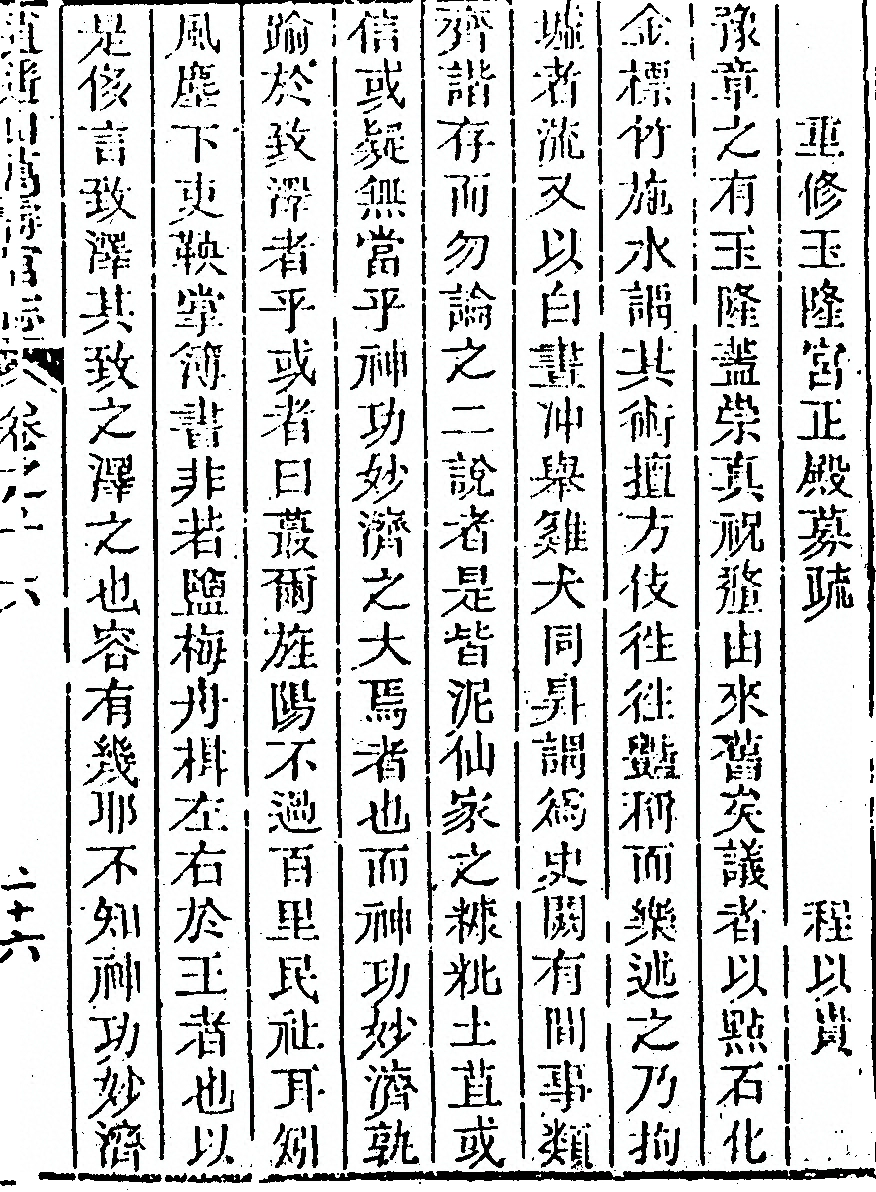 重修玉隆宮正殿募疏 程以貴
豫章之有玉隆蓋崇真祝釐由來舊矣議者以點石化
金標竹施水謂其術擅方伎徃徃豔稱而樂述之乃拘
墟者流又以白晝冲舉雞犬同昇謂為史闕有間事類
齊諧存而勿論之二說者是皆泥仙家之糠粃土苴或
信或疑無當乎神功妙濟之大焉者也而神功妙濟孰
踰於致澤者乎或者曰蕞爾旌陽不過百里民社耳矧
風塵下吏鞅掌簿書非若鹽梅舟楫左右於王者也以
是侈言致澤其致之澤之也容有幾耶不知神功妙濟
逍遙山萬壽宮志 卷之十六
二十六